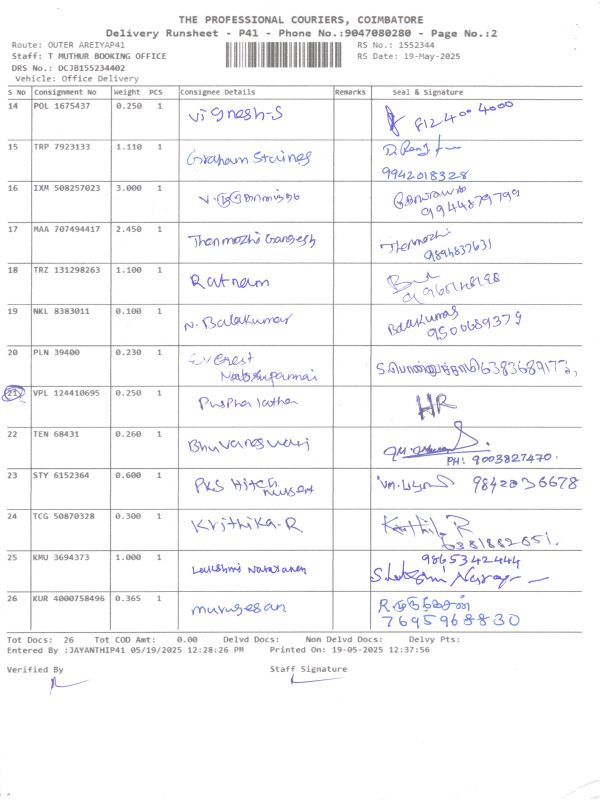 THE PROFESSIONAL COURIERS, COIMBATORE
Delivery Runsheet - P41 - Phone No.:9047080280 - Page No.:2
Route: OUTER AREIYAP41 RS No.: 1552344
Staff: T MUTHUR BOOKING OFFICE RS Date: 19-May-2025
DRS No.: DCJB155234402
Vehicle: Office Delivery
S No Consignment No Weight PCS Consignee Details Remarks Seal & Signature
14 POL 1675437 0.250 1 Vignesh-S 812 400 4000
15 TRP 7923133 1.110 1 Graham Staines
9942018328
16 IXM 508257023 3.000 1
9944879799
17 MAA 707494417 2.450 1 Thenmozhi Ganesh Thenmozhi
9894837631
18 TRZ 131298263 1.100 1 Ratnam
19 NKL 8383011 0.100 1 N. Balakumar Balakumar
9500689379
20 PLN 39400 0.230 1 Everest 6383689173,
21 VPL 124410695 0.250 1 Pushpalatha HR
22 TEN 68431 0.260 1 Bhuvaneswari
PH: 9003827470.
23 STY 6152364 0.600 1 PKS Hitech 9842036678
24 TCG 50870328 0.300 1 Krithika-R Krithika R
6381882651.
25 KMU 3694373 1.000 1 Lakshmi Narayanan 9865342444
26 KUR 4000758496 0.365 1 murugesan R.முருகேசன்
7695968830
Tot Docs: 26 Tot COD Amt: 0.00 Delvd Docs: Non Delvd Docs: Delvy Pts:
Entered By :JAYANTHIP41 05/19/2025 12:28:26 PM Printed On: 19-05-2025 12:37:56
Verified By Staff Signature